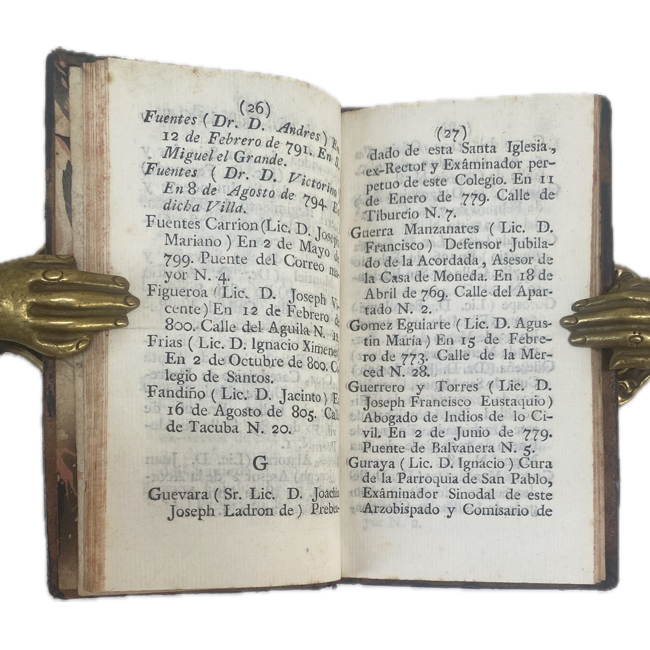 (26)
Fuentes (Dr. D. Andres)
12 de Febrero de 791. En
Miguel el Grande.
Fuentes (Dr. D. Victorino
En 8 de Agosto de 794
dicha Villa.
Fuentes Carrion (Lic. D. Joseph
Mariano) En 2 de Mayo de
799. Puente del Correo ma-
yor N. 4.
Figueroa (Lic. D. Joseph Vi-
cente) En 12 de Febrero de
800. Calle del Aguila N.
Frias (Lic. D. Ignacio Ximenez
En 2 de Octubre de 800. Co-
legio de Santos.
Fandiño (Lic. D. Jacinto) En
16 de Agosto de 805. Calle
de Tacuba N. 20.
G
Guevara (Sr. Lic. D. Joachin
Joseph Ladron de) Preben-
(27)
dado de esta Santa Iglesia,
ex-Rector y Exâminador per-
petuo de este Colegio. En 11
de Enero de 779. Calle de
Tiburcio N. 7.
Guerra Manzanares (Lic. D.
Francisco) Defensor Jubila-
do de la Acordada, Asesor de
la Casa de Moneda. En 18 de
Abril de 769. Calle del Apar-
tado N. 2.
Gomez Eguiarte (Lic. D. Agus-
tin María) En 15 de Febre-
ro de 773. Calle de la Mer-
ced N. 28.
Guerrero y Torres (Lic. D.
Joseph Francisco Eustaquio)
Abogado de Indios de lo Ci-
vil. En 2 de Junio de 779.
Puente de Balvanera N. 5.
Guraya (Lic. D. Ignacio) Cura
de la Parroquia de San Pablo,
Exâminador Sinodal de este
Arzobispado y Comisario de